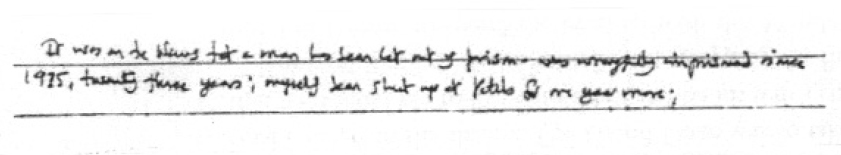 It was on the News that a man has been let out of prison - was wrongfully imprisoned since
1975, twenty three years; myself been shut up at for one year more;